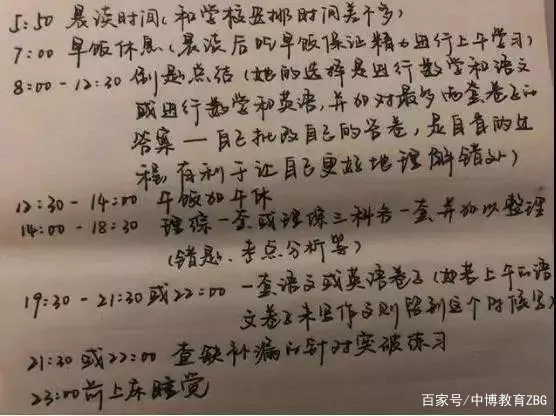 5:50 晨读时间(和学校安排时间差不多)
7:00 早饭休息(晨读后吃早饭保证精力进行上午学习)
8:00-12:30 刷题总结(她的选择是进行数学和语文
或进行数学和英语,并加对最多两套卷子的
答案——自己批改自己的答卷,是自省的过
程,有利于让自己更好地理解错处)
12:30-14:00 午饭加午休
14:00-18:30 理综一套或理综三科各一套并加以整理
(错题、考点分析等)
19:30-21:30或22:00 一套语文或英语卷子(如若上午的语
文卷子未写作文则留到这个时候写)
21:30或22:00 查缺补漏的针对突破练习
23:00前上床睡觉
百家号/中博教育ZBG